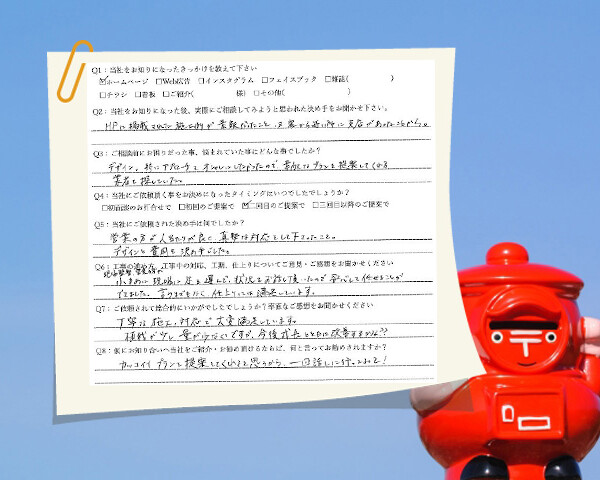 Q1：当社をお知りになったきっかけを教えて下さい
☑ホームページ □Web広告 □インスタグラム □フェイスブック □雑誌( )
□チラシ □看板 □ご紹介( 様) □その他( )
Q2：当社をお知りになった後、実際にご相談してみようと思われた決め手をお聞かせ下さい。
HPに掲載されていた施工例が素敵だったこと、又家から近い所に支店があったことから。
Q3：ご相談前にお困りだった事、悩まれていた事はどんな事でしたか？
デザイン、特にアプローチをオシャレにしたかったので、素敵なプランを提案してくれる
業者を探していた。
Q4：当社にご依頼頂く事をお決めになったタイミングはいつでしたでしょうか？
□初回のお打合せで □初回のご提案で ☑二回目のご提案で □三回目以降のご提案で
Q5：当社にご依頼された決め手は何でしたか？
営業の方が人当たりが良く、真摯な対応をして下さったこと。
デザインと費用も決め手でした。
Q6：工事の進め方、工事中の対応、工期、仕上りについてご意見・ご感想をお聞かせください
現場監督 営業様が
小まめに現場に足を運び、状況をお話し頂いたので安心して任せることが
できました。言うまでもなく、仕上りには満足しています。
Q7：ご依頼されて総合的にいかがでしたでしょうか？率直なご感想をお聞かせください
丁寧な施工、対応で大変満足しています。
植栽が少し量が少ないですが、今後成長とともに改善するかな??
Q8：仮にお知り合いへ当社をご紹介・お勧め頂けるならば、何と言ってお勧めされますか？
カッコイイプランを提案してくれると思うから、一回話しに行ってみて！